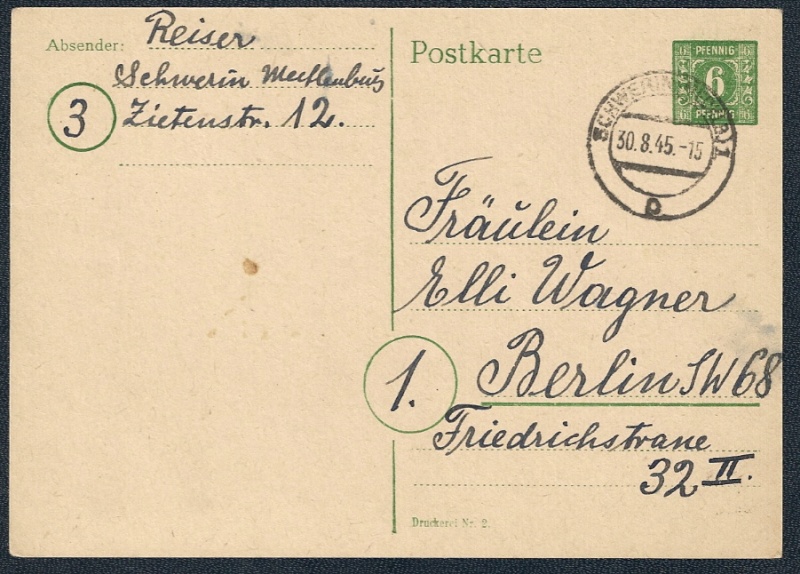 Absender: Reiser
Schwerin Mecklenburg
3 Zietenstr. 12.
Postkarte
PFENNIG
6
PFENNIG
30.8.45.-15
Fräulein
Elli Wagner
1. Berlin SW 68
Friedrichstrane
32 II.
Druckerei Nr. 2.